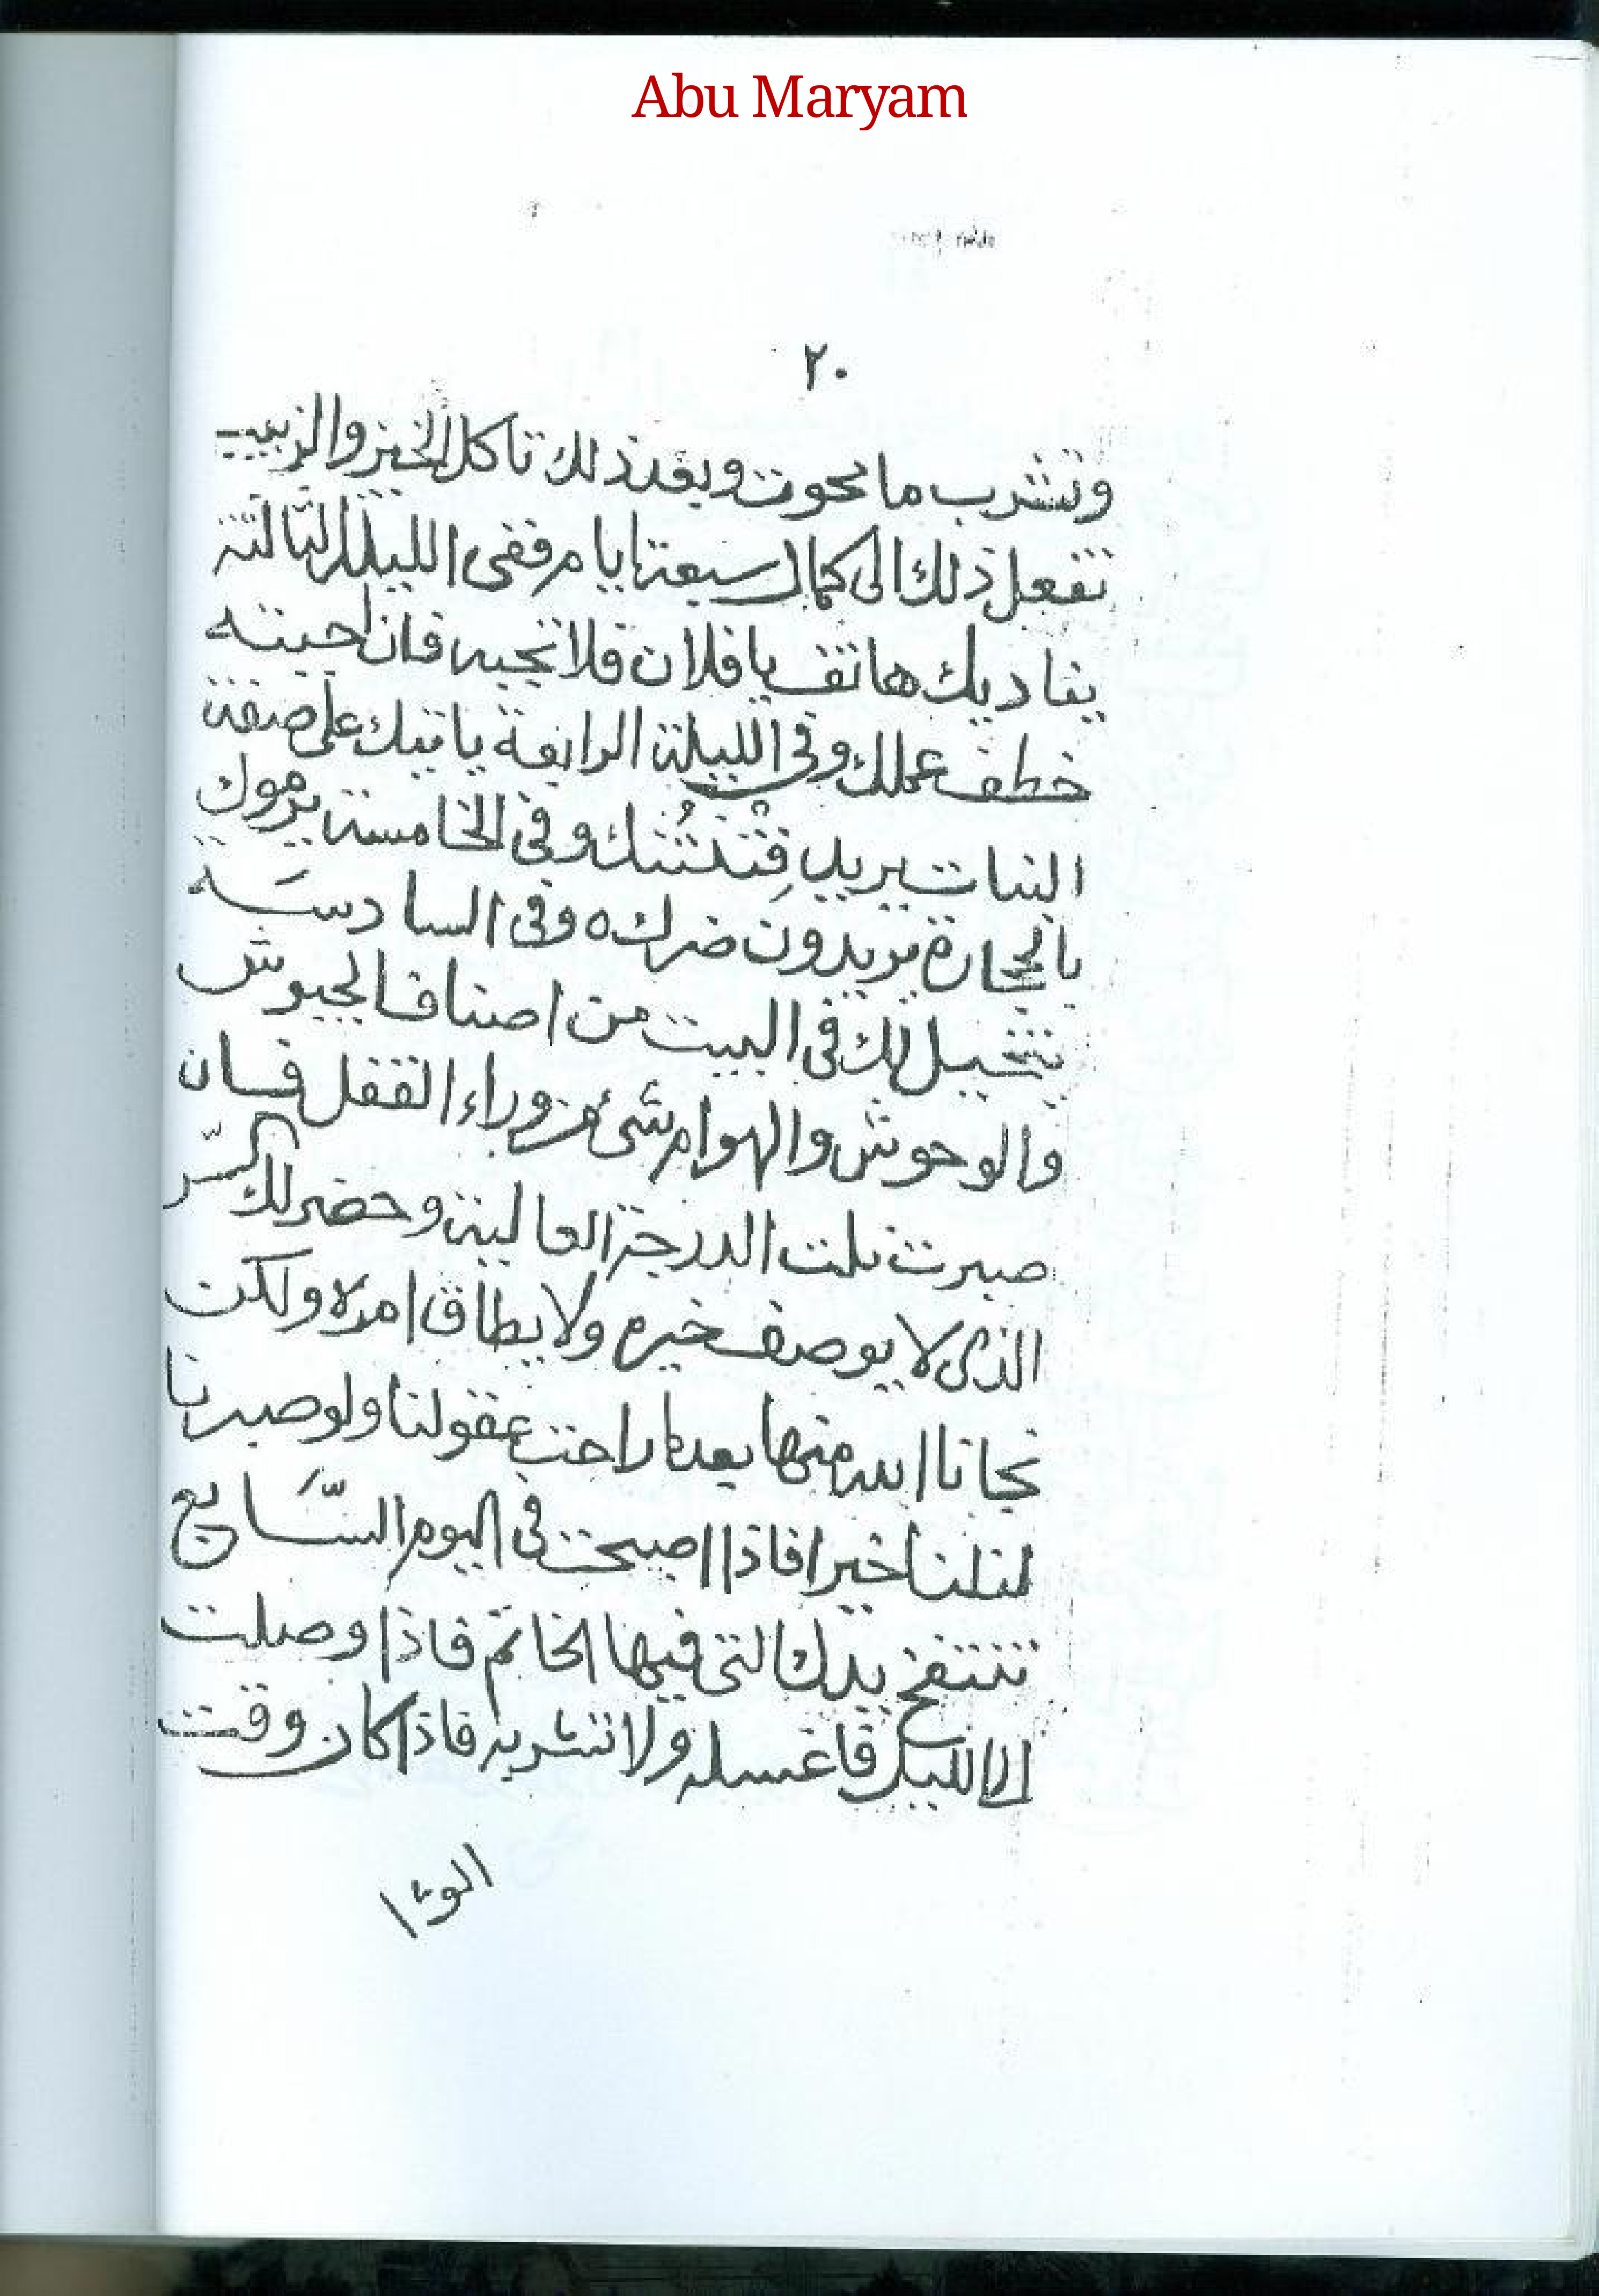 Abu Maryam
٢٠
وتشرب ما محوت وبعد ذلك تاكل الخبز والزبيب
تفعل ذلك الى كمال سبعة ايام ففى الليلة الثالثة
يناديك هاتف يا فلان فلا تجيبه فان اجبته
خطف عملك وفى الليلة الرابعة ياتيك على صفة
البنات يريد فتنتك وفى الخامسة يرموك
بالحجارة يريدون ضرك ٥ وفى السادسة
تتخيل لك فى البيت من اصناف الجيوش
والوحوش والهوام شئ من وراء القفل فان
صبرت نلت الدرجة العالية وحضر لك السر
الذى لا يوصف خيره ولا يطاق امره ولكن
نجانا الله منها بعدما راحت عقولنا ولو صبرنا
لنلنا خيرا فاذا اصبحت فى اليوم السّابع
تنتفخ يدك التى فيها الخاتم فاذا وصلت
الا الليل فاغسله ولا تشربه فاذا كان وقت